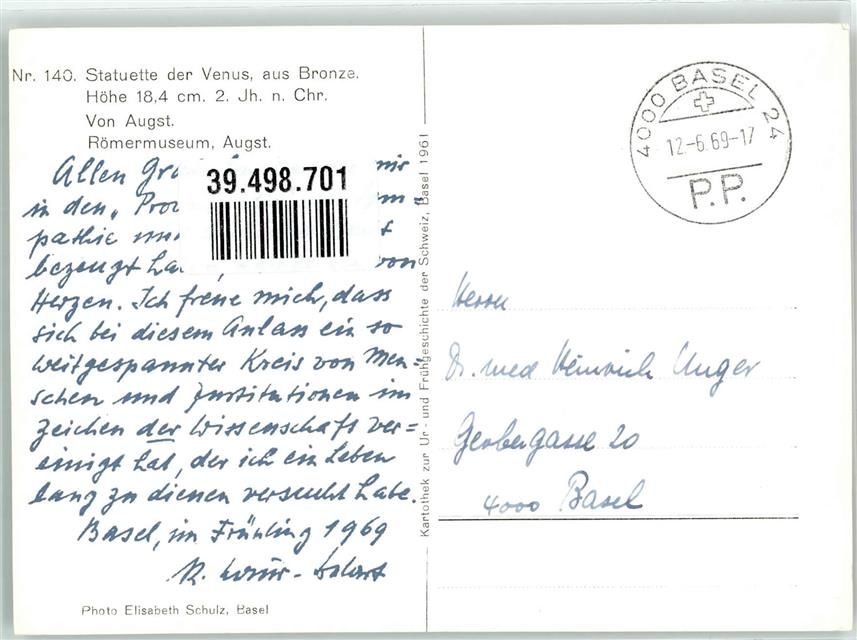 Nr. 140. Statuette der Venus, aus Bronze.
Höhe 18,4 cm. 2. Jh. n. Chr.
Von Augst.
Römermuseum, Augst.
Allen mir
in den „
pathie
bezeugt von
Herzen. Ich freue mich, dass
sich bei diesem Anlass ein so
weitgespannter Kreis von Men=
schen und Institutionen im
Zeichen der Wissenschaft ver=
einigt hat, der ich ein Leben
lang zu dienen versucht habe.
Basel, im Frühling 1969
R.
Photo Elisabeth Schulz, Basel
39.498.701
Kartothek zur Ur- und Frühgeschichte der Schweiz, Basel 1961
4000 BASEL 24
12-6.69-17
P.P.
Herrn
Dr. med Heinrich Unger
Gerbergasse 20
4000 Basel